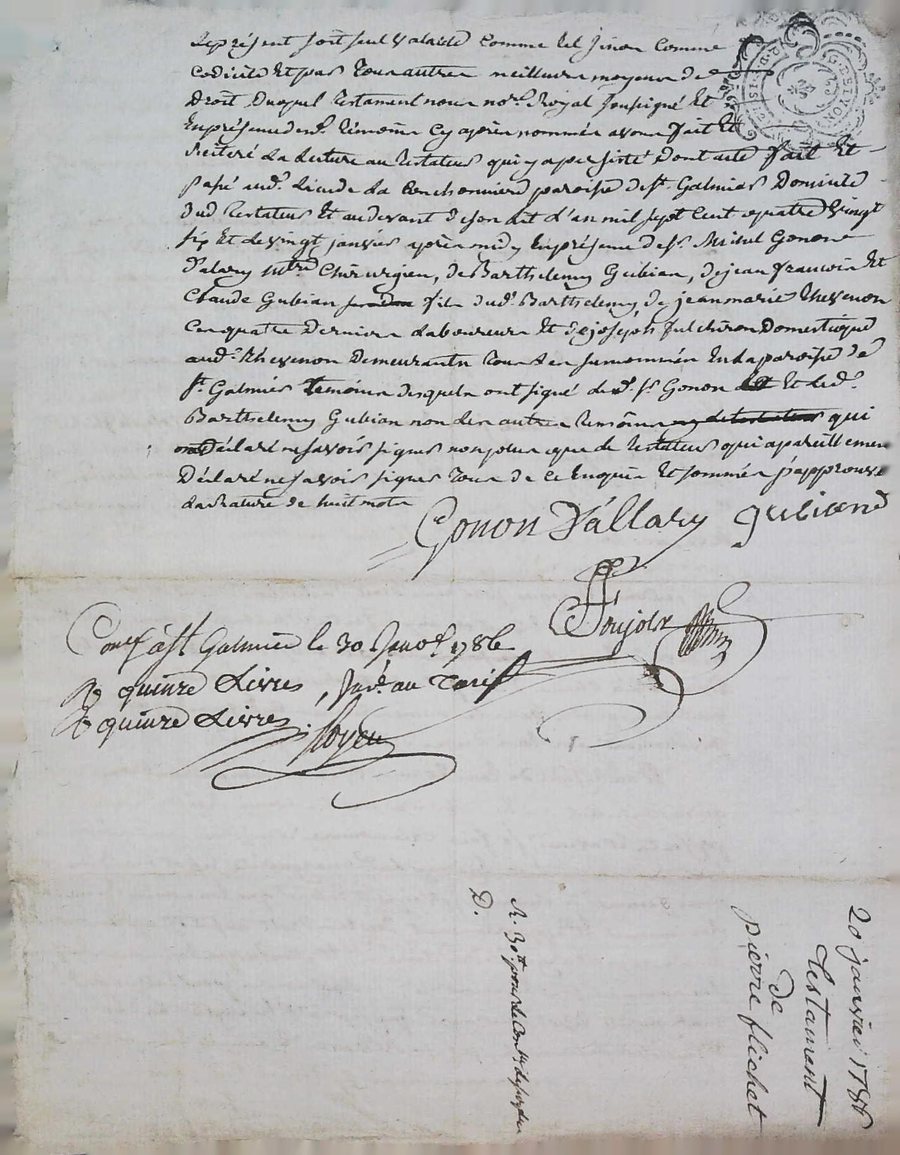 Le présent soit seul valable comme tel sinon comme
codicile Et par tout autre meilleure moyeur de
Droit Duquel testament nous no.re Royal soussigné Et
En présence des témoins cy après nommés avons fait Et
reiteré La Lecture au testateur qui y a persisté Dont acte fait Et
passé aud. Lieu de La paroisse de St. Galmier Domicile
dud testateur Et au devant de son dit L'an mil sept Cent quatre vingt
six Et Le vingt janvier après midy En présence de sr. Michel Gonon
D'alary Mtre Chirurgien, de Barthelemy Gubian, de jean Et
Claude Gubian fils dud. Barthelemy, de jean marie thevenon
Ces quatre Derniers Laboureurs Et de joseph fulchiron Domestique
aud. thevenon Demeurants tous En La paroise de
St. Galmier temoins desqueln ont signé Le d. sr. Gonon Et Led.
Barthelemy Gubian non Les autres temoins qui
Déclaré ne savoir signer non plus que Le testateur qui a pareillement
Déclaré ne savoir signer tous de ce Enquis Et sommés j'approuve
La rature de huit mots
Gonon D'allary gubiand
Poujolx
Con. à St Galmier le 30 Janv. 1786
R quinze Livres, au Tarif
R quinze Livres
Royer
D.
20 janvier 1786
testament
de
pierre flichet
G. DE LYON